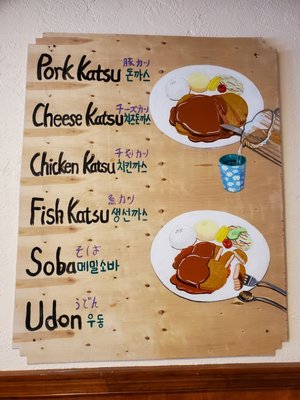 Pork Katsu 豚カツ
돈까스
Cheese Katsu チーズカツ
치즈돈까스
Chicken Katsu チキンカツ
치킨까스
Fish Katsu 魚カツ
생선까스
Soba そば
메밀소바
Udon うどん
우동